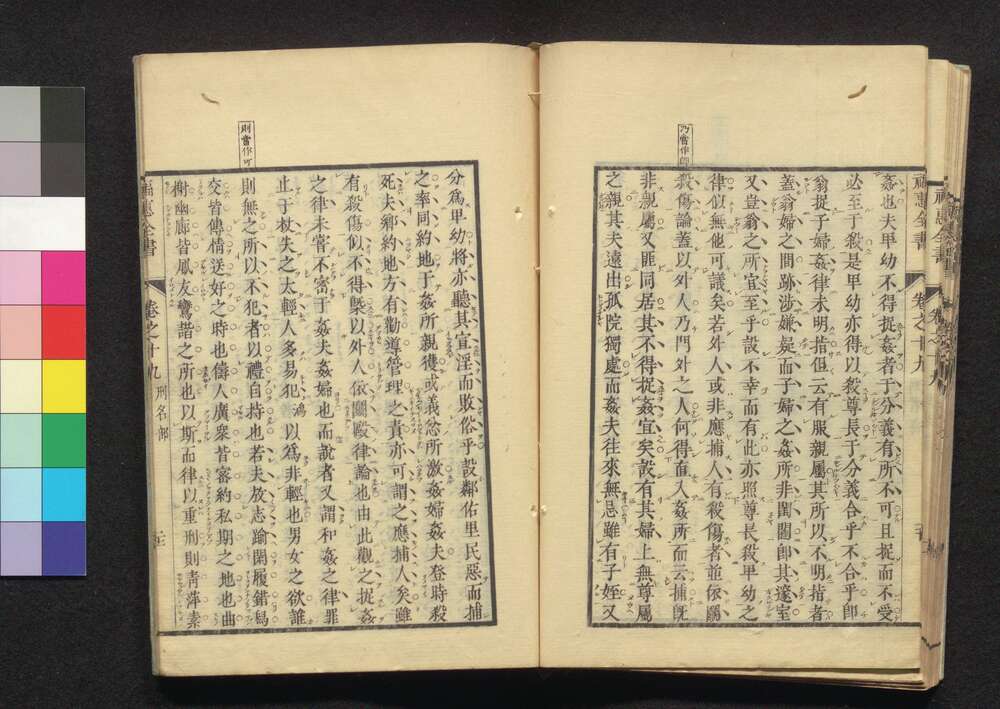 乃當作即
姦也夫卑幼不得捉姦者于分義有所不可且捉而不受
必至于殺是卑幼亦得以殺尊長于分義合乎不合乎即
翁捉子婦姦律未明指但云有服親屬其所以不明指者
蓋翁婦之間跡涉嫌疑而子婦之姦所非閨閫即其邃室
又豈翁之所宜至乎設不幸而有此亦照尊長殺卑幼之
律似無他可議矣若外人或非應捕人有殺傷者並依鬭
殺傷論蓋以外人乃門外之人何得直入姦所而云捕既
非親屬又匪同居其不得捉姦宜矣設有其婦上無尊屬
之親其夫遠出孤院獨處而姦夫往來無忌雖有子姪又
則當作可
分為卑幼將亦聽其宣淫而敗俗乎設鄰佑里民惡而捕
之率同約地于姦所親獲或義忿所激姦婦姦夫登時殺
死夫鄉約地方有勸導管理之責亦可謂之應捕人矣雖
有殺傷似不得槩以外人依鬭毆律論也由此觀之捉姦
之律未嘗不密于姦夫姦婦也而說者又謂和姦之律罪
止于杖失之太輕人多易犯鴻以為非輕也男女之欲誰
則無之所以不犯者以禮自持也若夫放志踰閑履錯舄
交皆傳情送好之時也儔人廣衆皆密約私期之地也曲
榭幽廊皆鳳友鸞諧之所也以斯而律以重刑則青萍素
福惠全書
卷之十九
刑名部